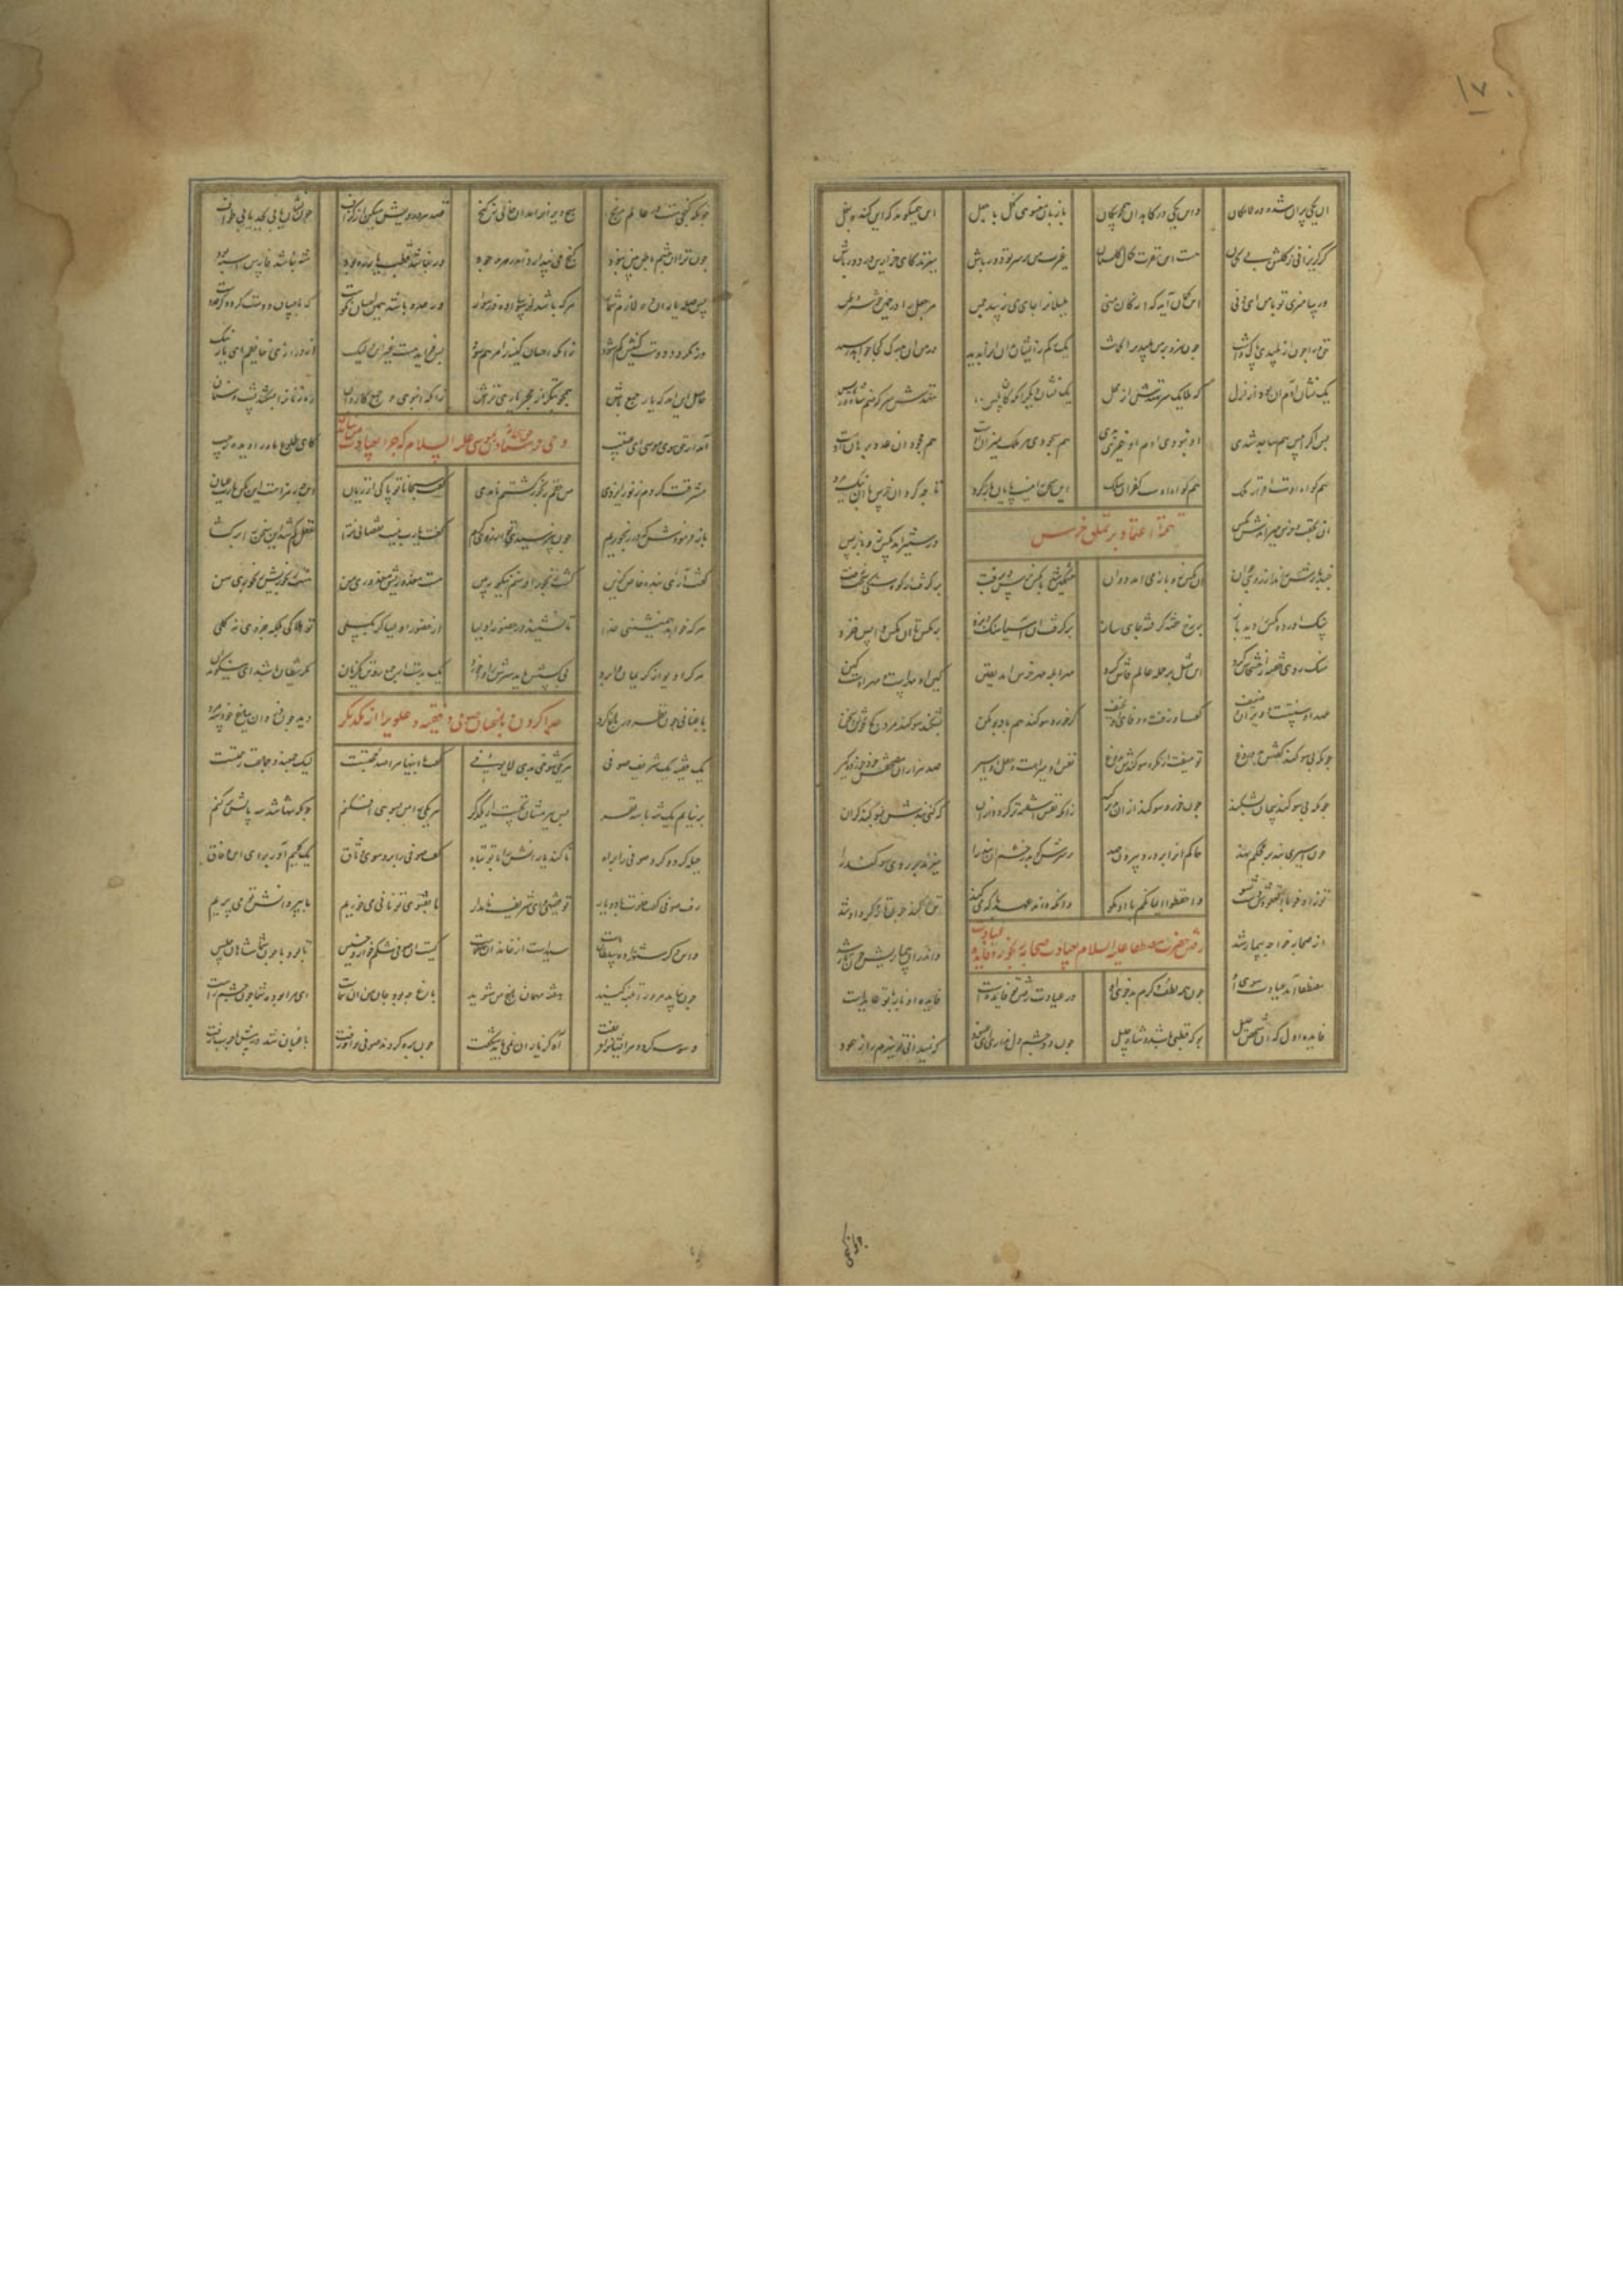 آن یکی پران شده در لامکان واین یکی در کاهدان همچون سگان با زبان معنوی گل با جعل این همیگوید که ای گنده بغل
گر گریزانی ز گلشن بی گمان هست این نفرت کمال گلستان غیرت من بر سر تو دورباش میزند کای خس ازین در دور باش
ور بیامیزی تو با من ای دنی این گمان آید که از کان منی بلبلانرا جای می زیبد چمن مر جعل را در چمین خوشتر وطن
حق مرا چون از پلیدی پاک داشت چون سزد بر من پلیدی را گماشت یک رگم زیشان بد و آنرا برید در من آن بدرگ کجا خواهد رسید
یک نشان آدم آن بود از ازل که ملایک سر نهندش از محل یک نشان دیگر آنکه آن بلیس ننهدش سر که منم شاه و رئیس
پس اگر ابلیس هم ساجد شدی او نبودی آدم او غیری بدی هم سجود هر ملک میزان اوست هم جحود آن عدو برهان اوست
هم گواه اوست اقرار ملک هم گواه اوست کفران سگک این سخن پایان ندارد بازگرد تا چه کرد آن خرس با آن نیک مرد
تتمه اعتماد بر تملق خرس
آن بخفت و خرس میراندش مگس وز ستیز آمد مگس زو باز پس
چند بارش راند از روی جوان آن مگس زو باز می آمد دوان خشمگین شد با مگس خرس و برفت برگرفت از کوه سنگی سخت زفت
سنگ آورد و مگس را دید باز بر رخ خفته گرفته جای ساز برگرفت آن آسیا سنگ و بزد بر مگس تا آن مگس واپس خزد
سنگ روی خفته را خشخاش کرد این مثل بر جمله عالم فاش کرد مهر ابله مهر خرس آمد یقین کین او مهرست و مهر اوست کین
عهد او سستست و ویران و ضعیف گفت او زفت و وفای او نحیف گر خورد سوگند هم باور مکن بشکند سوگند مرد کژ سخن
چونکه بی سوگند گفتش بد دروغ تو میفت از مکر و سوگندش بدوغ نفس او میرست و عقل او اسیر صد هزاران مصحفش خود خورده گیر
چونکه بی سوگند پیمان بشکند چون خورد سوگند از آن بدتر کند زانکه نفس آشفته تر گردد از آن که کنی بندش بسوگند گران
چون اسیری بند بر حاکم نهد حاکم آنرا بردرد بیرون جهد بر سرش کوبد ز خشم آن بند را میزند بر روی او سوگند را
تو ز اوفوا بالعقودش دست شو واحفظوا ایمانکم با او مگو وانکه داند عهد با که میکند تن کند چون تار و گرد او تند
رفتن حضرت مصطفی علیه السلام بعیادت صحابه رنجور و فایده عیادت
از صحابه خواجه بیمار شد واندر آن بیماریش چون تار شد
مصطفی آمد عیادت سوی او چون همه لطف و کرم بد خوی او در عیادت رفتن تو فایده است فایده آن باز با تو عایدست
فایده اول که آن شخص علیل بوک قطبی باشد و شاه جلیل چون دو چشم دل نداری ای عنود که نمیدانی تو هیزم را ز عود
چونکه گنجی هست در عالم مرنج هیچ ویران را مدان خالی ز گنج قصد هر درویش میکن از گزاف چون نشان یابی بجد میکن طواف
چون ترا آن چشم باطن بین نبود گنج می پندار اندر هر وجود ور نباشد قطب یار ره بود شه نباشد فارس اسپه بود
پس صله یاران ره لازم شمار هر که باشد گر پیاده ور سوار ور عدو باشد همین احسان نکوست که باحسان بس عدو گشتست دوست
ور نگردد دوست کینش کم شود زانکه احسان کینه را مرهم شود بس فواید هست غیر این ولیک از درازی خایفم ای یار نیک
حاصل این آمد که یار جمع باش همچو بتگر از حجر یاری تراش زانکه انبوهی و جمع کاروان رهزنانرا بشکند پشت و سنان
وحی فرستادن حق تعالی بموسی علیه السلام که چرا بعیادت من نیامدی
آمد از حق سوی موسی این عتیب کای طلوع ماه دیده تو ز جیب
مشرقت کردم ز نور ایزدی من حقم رنجور گشتم نامدی گفت سبحانا تو پاکی از زیان این چه رمزست این بکن یارب بیان
باز فرمودش که در رنجوریم چون نپرسیدی تو از روی کرم گفت یارب نیست نقصانی ترا عقل گم شد این سخن را برگشا
گفت آری بنده خاص گزین گشت رنجور او منم نیکو ببین هست معذوریش معذوری من هست رنجوریش رنجوری من
هر که خواهد همنشینی خدا تا نشیند در حضور اولیا از حضور اولیا گر بگسلی تو هلاکی زانکه جزوی نه کلی
هر که را دیو از کریمان وا برد بی کسش یابد سرش را او خورد یک بدست از جمع رفتن یک زمان مکر شیطان باشد این نیکو بدان
جدا کردن باغبان صوفی و فقیه و علویرا از یکدیگر
باغبانی چون نظر در باغ کرد دید چون دزدان بباغ خود سه مرد
یک فقیه و یک شریف و صوفی هر یکی شوخی بدی لایوفی گفت با اینها مرا صد حجتست لیک جمعند و جماعت رحمتست
بر نیایم یک تنه با سه نفر پس ببرمشان نخست از یکدگر هر یکی را من بسوی افکنم چونکه تنها شد سبیلش بر کنم
حیله کرد و کرد صوفی را براه تا کند یارانش را با او تباه گفت صوفی را برو سوی وثاق یک گلیم آور برای این رفاق
رفت صوفی گفت خلوت با دو یار تو فقیهی وین شریف نامدار ما بفتوی تو نانی میخوریم ما بپر دانش تو می پریم
وین دگر شهزاده و سلطان ماست سیدست از خاندان مصطفاست کیست آن صوفی شکم خوار خسیس تا بود با چون شما شاهان جلیس
چون بیاید مر ورا پنبه کنید هفته مهمان باغ من شوید باغ چه بود جان من آن شماست ای شما بوده مرا چون چشم راست
وسوسه کرد و مر ایشانرا فریفت آه کز یاران نمی باید شکیفت چون بره کردند صوفی را و رفت باغبان شد در پیش با چوب زفت